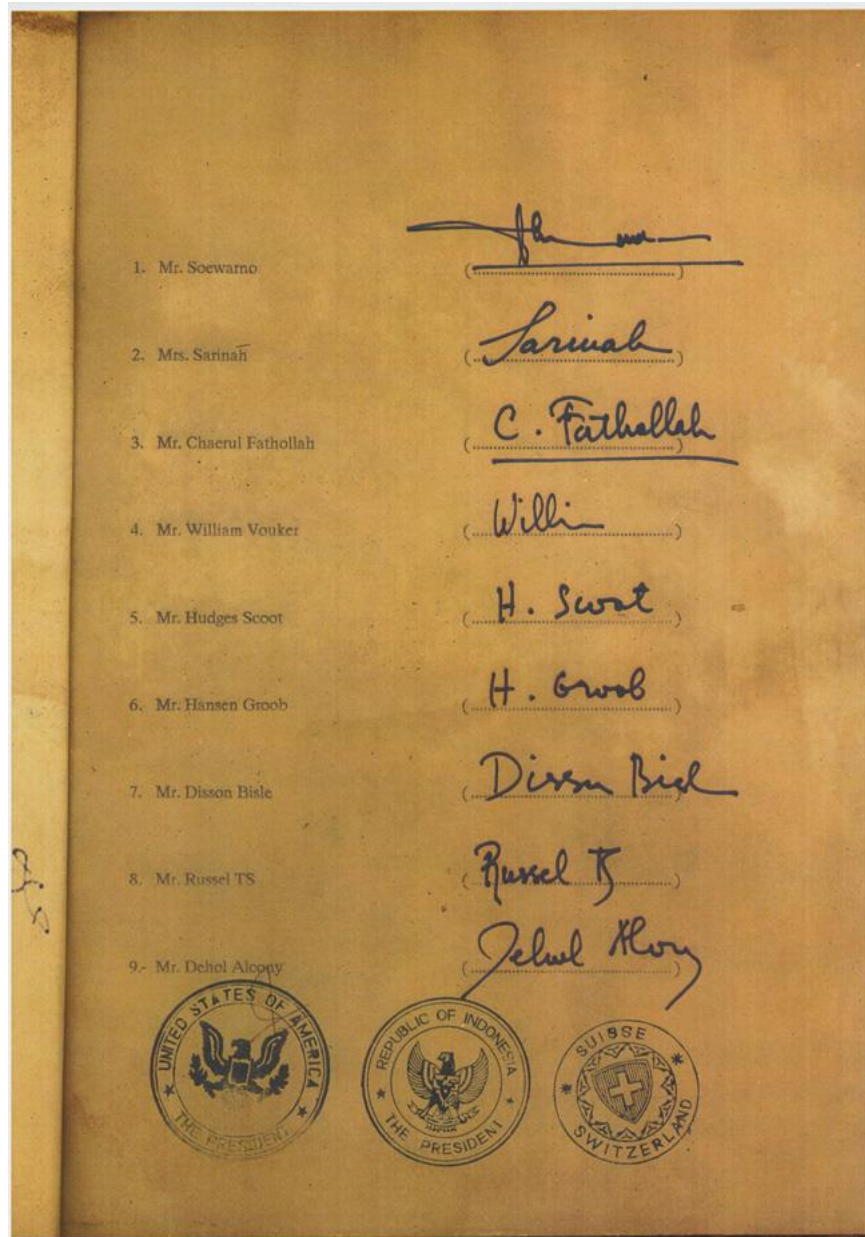 1. Mr. Soewarno (....................)
2. Mrs. Sarinah (Sarinah)
3. Mr. Chaerul Fathollah (C. Fathollah)
4. Mr. William Vouker (Willi)
5. Mr. Hudges Scoot (H. Scoot)
6. Mr. Hansen Groob (H. Groob)
7. Mr. Disson Bisle (Disson Bisl)
8. Mr. Russel TS (Russel TS)
9.- Mr. Dehol Alcony (Dehol Alcony)
UNITED STATES OF AMERICA
THE PRESIDENT
REPUBLIC OF INDONESIA
THE PRESIDENT
SUISSE
SWITZERLAND